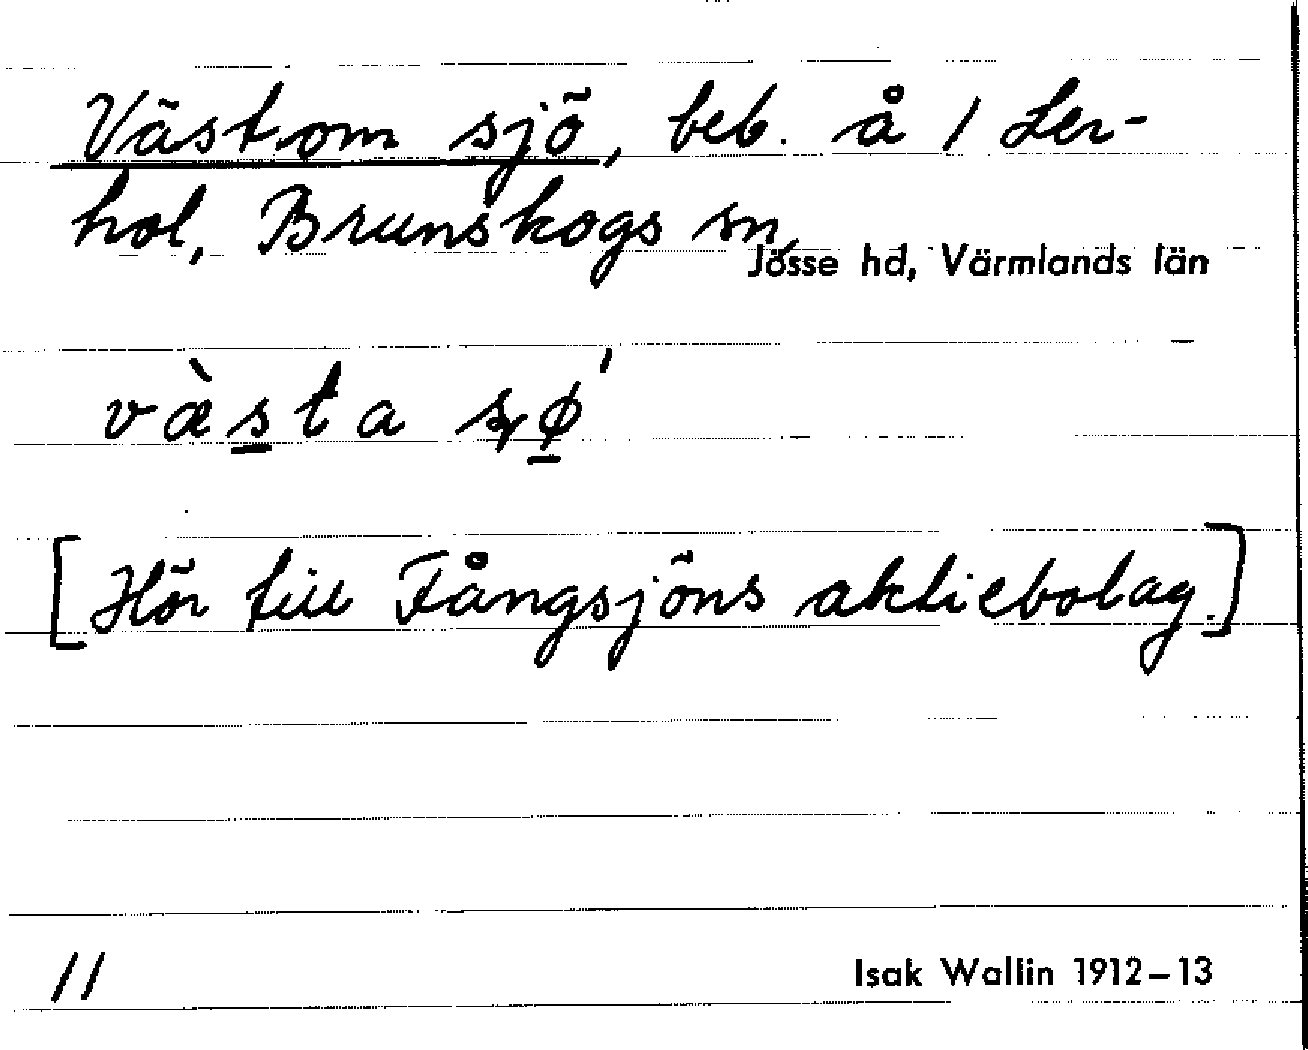 Västom sjö, beb. å 1 Ler-
hol, Brunskogs sn,
Jösse hd, Värmlands län
væ̀sta
[Hör till Fångsjöns aktiebolag.]
11
Isak Wallin 1912–13